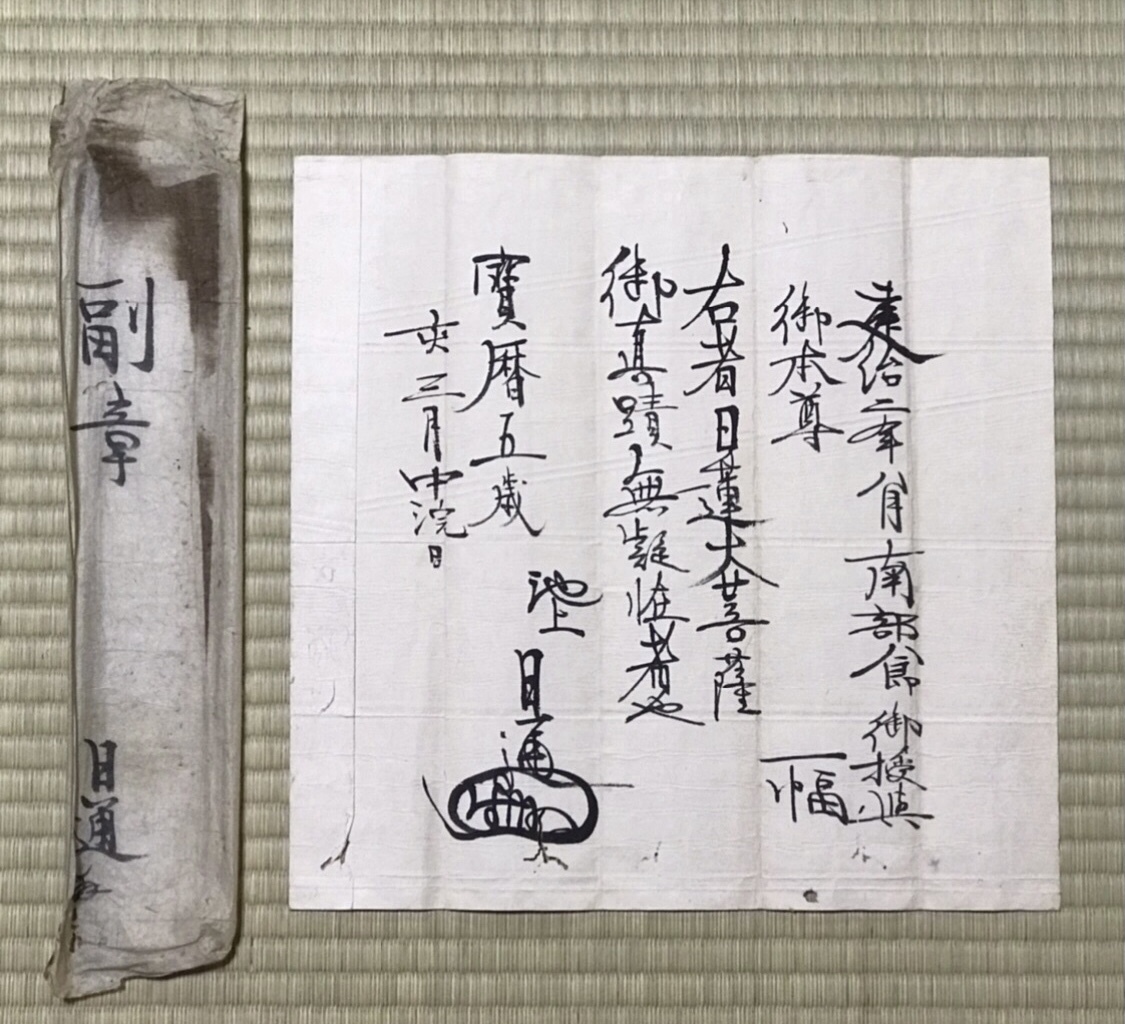 建治二年八月南部郷御授與
御本尊
一幅
右者日蓮大菩薩
御真蹟無疑惟者也
寶暦五歳
亥三月中浣日
池上
日通
副章
日通